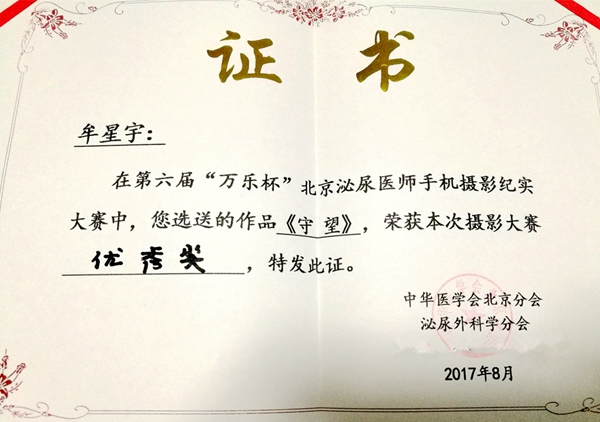 证 书
牟星宇：
在第六届“万乐杯”北京泌尿医师手机摄影纪实
大赛中，您选送的作品《守 望》，荣获本次摄影大赛
优秀奖，特发此证。
中华医学会北京分会
泌尿外科学分会
2017年8月